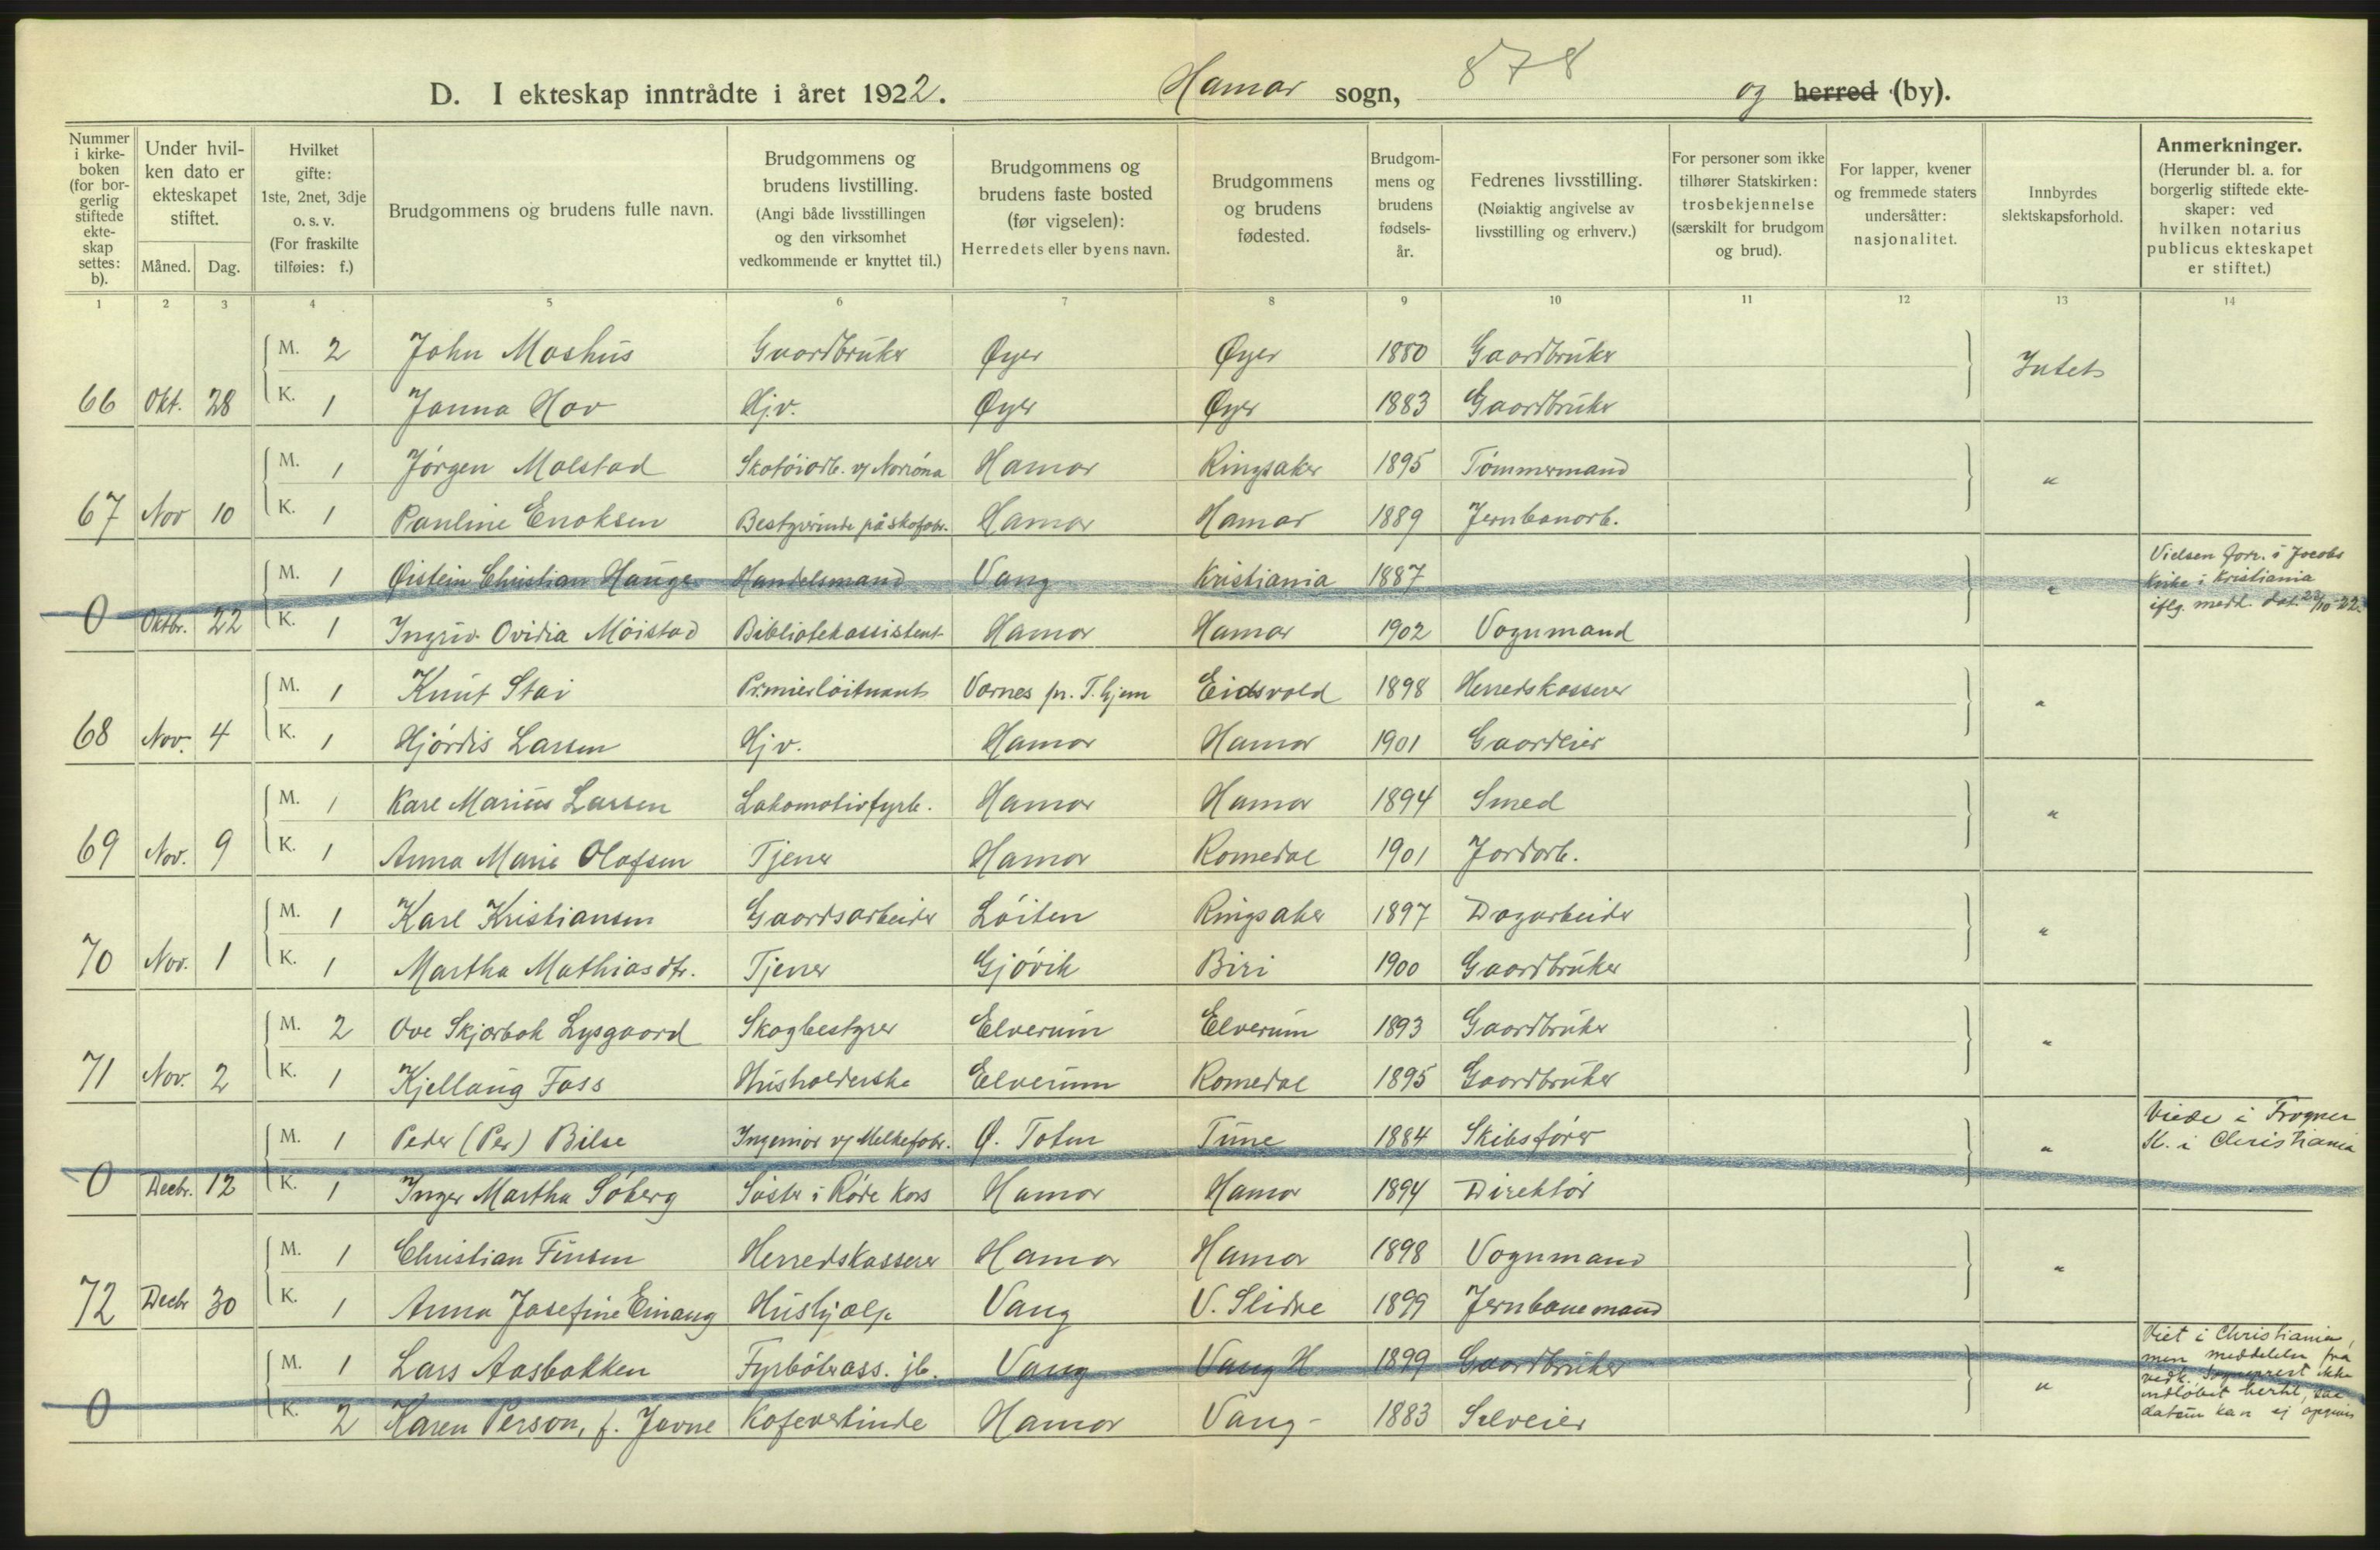 878
D. I ekteskap inntrådte i året 1922. Hamar sogn, og herred (by).
Nummer i kirke-boken (for bor-gerlig stiftede ekte-skap settes: b).
Under hvil-ken dato er ekteskapet stiftet.
Måned. Dag.
Hvilket gifte: 1ste, 2net, 3dje o. s. v. (For fraskilte tilføies: f.)
Brudgommens og brudens fulle navn.
Brudgommens og brudens livstilling. (Angi både livsstillingen og den virksomhet vedkommende er knyttet til.)
Brudgommens og brudens faste bosted (før vigselen): Herredets eller byens navn.
Brudgommens og brudens fødested.
Brudgom-mens og brudens fødsels-år.
Fedrenes livsstilling. (Nøiaktig angivelse av livsstilling og erhverv.)
For personer som ikke tilhører Statskirken: trosbekjennelse (særskilt for brudgom og brud).
For lapper, kvener og fremmede staters undersåtter: nasjonalitet.
Innbyrdes slektskapsforhold.
Anmerkninger. (Herunder bl. a. for borgerlig stiftede ekte-skaper: ved hvilken notarius publicus ekteskapet er stiftet.)
1 2 3 4 5 6 7 8 9 10 11 12 13 14
M. 2 John Moshus Gaardbruker Øyer Øyer 1880 Gaardbruker Intet
66 Okt. 28 K. 1 Janna Hov Hj.v. Øyer Øyer 1883 Gaardbruker
M. 1 Jörgen Malstad Skotöiarb. v/ Norröna Hamar Ringsaker 1895 Tömmermand "
67 Nov 10 K. 1 Pauline Enoksen Bestyrerinde på skofabr. Hamar Hamar 1889 Jernbanarb.
M. 1 Øistein Christian Hauge Handelsmand Vang Kristiania 1887 " Vielsen forr. i Jacobs Kirke i Kristiania iflg. medd. dat. 22/10-22.
0 Oktbr. 22 K. 1 Ingrid Ovidia Möistad Bibliotekassistent Hamar Hamar 1902 Vognmand
M. 1 Knut Stai Premierlöitnant Værnes pr. T.hjem Eidsvold 1898 Herredskasserer "
68 Nov. 4 K. 1 Hjördis Larsen Hj v. Hamar Hamar 1901 Gaardeier
M. 1 Karl Marius Larsen Lokomotivfyrb. Hamar Hamar 1894 Smed "
69 Nov. 9 K. 1 Anna Marie Olafsen Tjener Hamar Romedal 1901 Jordarb.
M. 1 Karl Kristiansen Gaardsarbeider Löiten Ringsaker 1897 Dagarbeider "
70 Nov. 1 K. 1 Martha Mathiasdtr. Tjener Gjövik Biri 1900 Gaardbruker
M. 2 Ove Skjærbæk Lysgaard Skogbestyrer Elverum Elverum 1893 Gaardbruker "
71 Nov. 2 K. 1 Kjellaug Foss Husholderske Elverum Romedal 1895 Gaardbruker
M. 1 Peder (Per) Bilse Ingeniør v/ Melkefabr. Ø. Toten Tune 1884 Skibsförer " Viede i Frogner K. i Christiania
0 Decbr. 12 K. 1 Inger Martha Söberg Söster i Röde Kors Hamar Hamar 1894 Direktör
M. 1 Christian Finsen Herredskasserer Hamar Hamar 1898 Vognmand "
72 Decbr 30 K. 1 Anna Josefine Einang Hushjælp Vang V. Slidre 1899 Jernbanemand
M. 1 Lars Aasbakken Fyrböterass. jb. Vang Vang H 1899 Gaardbruker " Viet i Christiania, men meddelelse fra vedk. Sogneprest ikke indløbet hertil, saa datum kan ej opgives
0 K. 2 Karen Person, f. Jevne Kafevertinde Hamar Vang 1883 Selveier